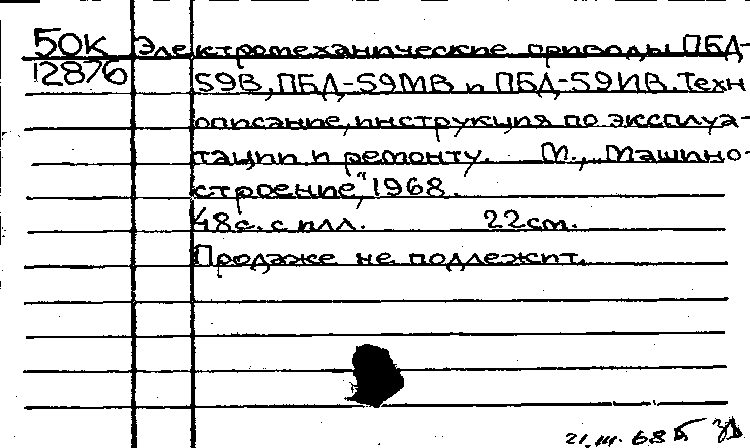 50К Электромеханические приводы ПБД-
12876 59В, ПБД-59МВ и ПБД-59ИВ. Техн
описание, инструкция по эксплуа-
тации и ремонту. М., „Машино-
строение", 1968.
48 с. с илл. 22 см.
Продаже не подлежит.
21.III.68